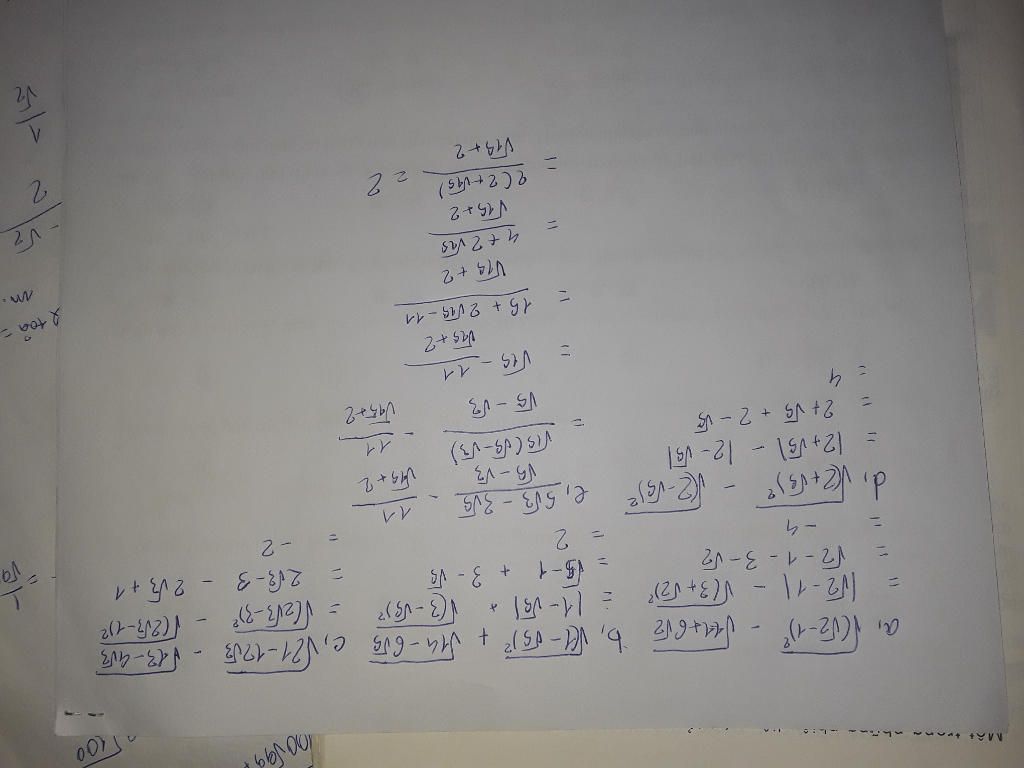 a, √(√2-1)² - √11+6√2
= |√2-1| - √(3+√2)²
= √2-1-3-√2
= -4
b, √(1-√5)² + √14-6√5
= |1-√5| + √(3-√5)²
= √5-1 + 3-√5
= 2
c, √21-12√3 - √13-4√3
= √(2√3-3)² - √(2√3-1)²
= 2√3-3 - 2√3+1
= -2
d, √(2+√5)² - √(2-√5)²
= |2+√5| - |2-√5|
= 2+√5 + 2-√5
= 4
e, 5√3-3√5 / √5-√3 - 11 / √15+2
= √15(√5-√3) / √5-√3 - 11 / √15+2
= √15 - 11 / √15+2
= 15+2√15-11 / √15+2
= 4+2√15 / √15+2
= 2(2+√15) / √15+2 = 2
Một trong những
1
√2
2
-√2